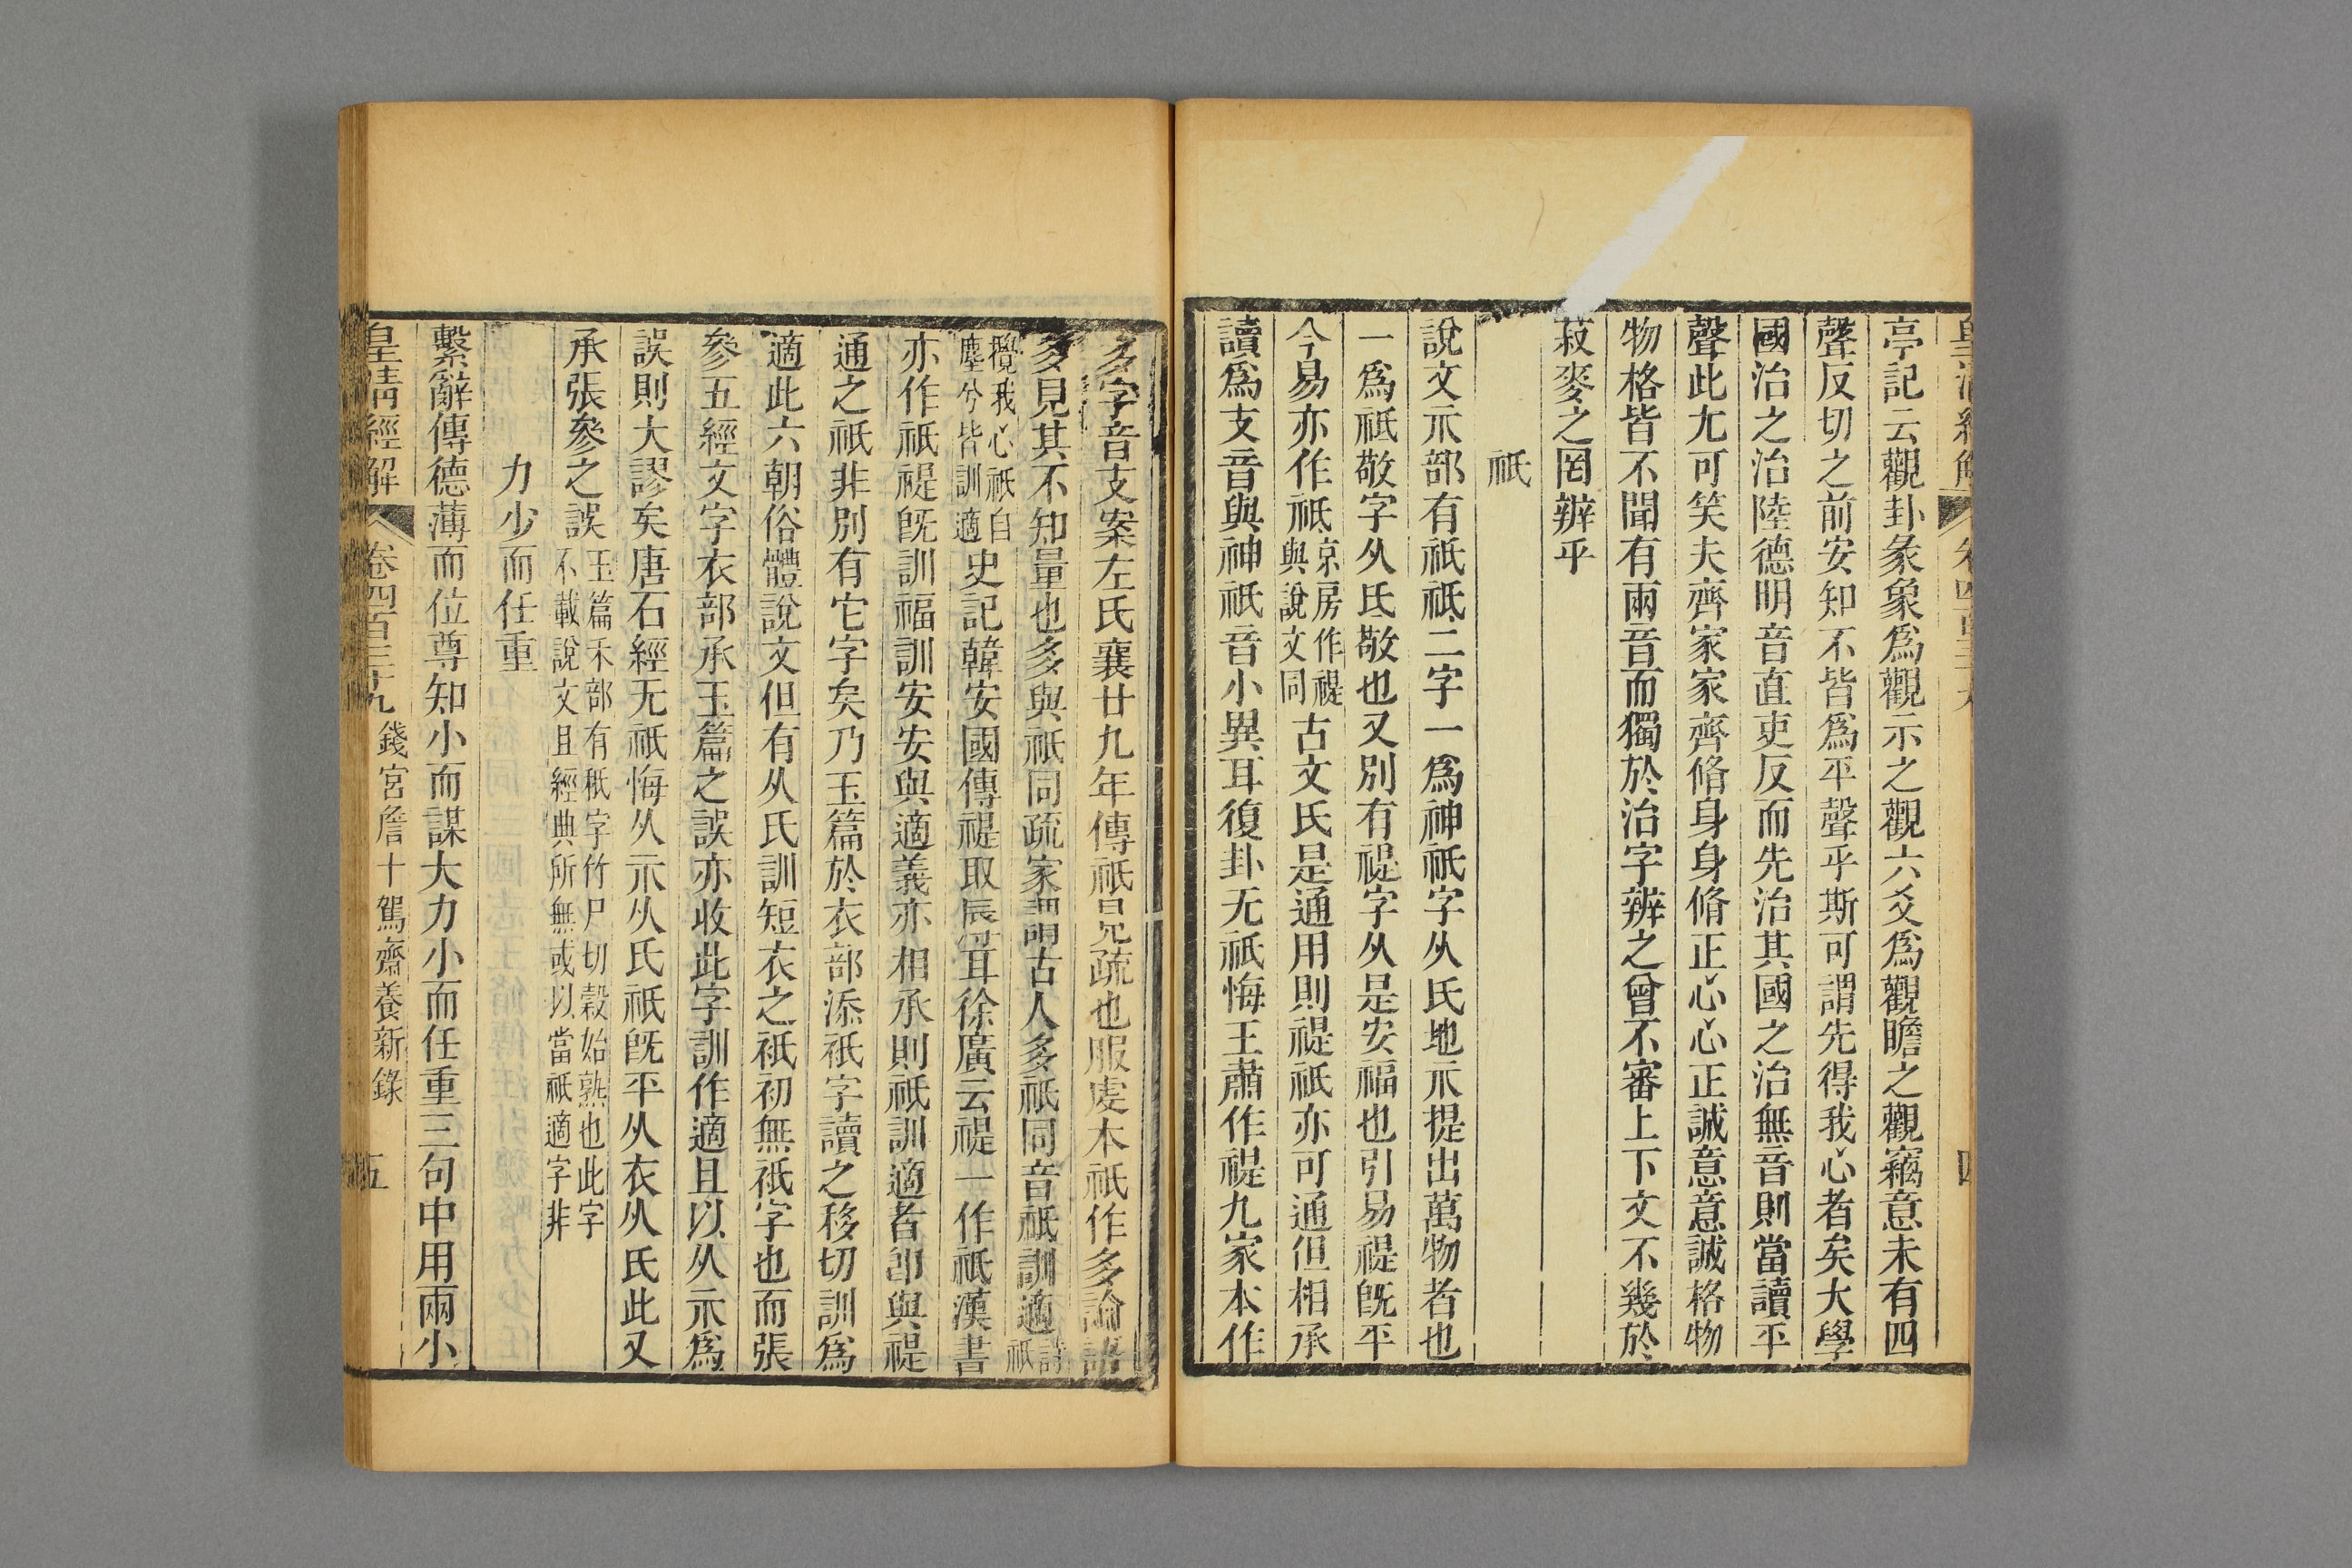 亭記云觀卦彖象爲觀示之觀六爻爲觀瞻之觀竊意未有四
聲反切之前安知不皆爲平聲乎斯可謂先得我心者矣大學
國治之治陸德明音直吏反而先治其國之治無音則當讀平
聲此尤可笑夫齊家家齊脩身身脩正心心正誠意意誠格物
物格皆不聞有兩音而獨於治字辨之曾不審上下文不幾於
菽麥之罔辨乎
祇
說文示部有祇祗二字一爲神祇字从氏地示提出萬物者也
一爲祗敬字从氐敬也又別有禔字从是安福也引易禔旣平
今易亦作祇京房作禔與說文同古文氏是通用則禔祇亦可通但相承
讀爲支音與神祇音小異耳復卦无祇悔王肅作禔九家本作
多字音支案左氏襄廿九年傳祇見疏也服虔本祇作多論語
多見其不知量也多與祇同疏家謂古人多祇同音祇訓適詩祇
攪我心祇自塵兮皆訓適史記韓安國傳禔取辱耳徐廣云禔一作祇漢書
亦作祇禔旣訓福訓安安與適義亦相承則祇訓適者卽與禔
通之祇非別有它字矣乃玉篇於衣部添衹字讀之移切訓爲
適此六朝俗體說文但有从氐訓短衣之袛初無衹字也而張
參五經文字衣部承玉篇之誤亦收此字訓作適且以从示爲
誤則大謬矣唐石經无祇悔从示从氏祇旣平从衣从氏此又
承張參之誤玉篇禾部有秖字竹尸切穀始熟也此字不載說文且經典所無或以當祇適字非
力少而任重
繫辭傳德薄而位尊知小而謀大力小而任重三句中用兩小
皇淸經解 卷四百三十九 錢宮詹十駕齋養新錄 五